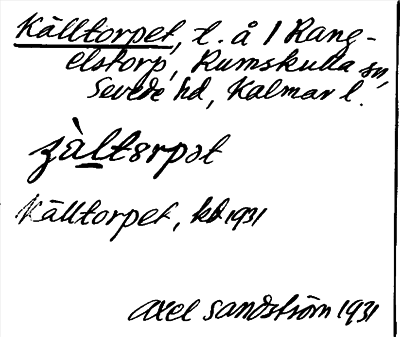 Källtorpet, t. å 1 Rang-
elstorp, Rumskulla sn,
Sevede hd, Kalmar l.
jàltərpət
Källtorpet, kb 1931
Axel Sandström 1931